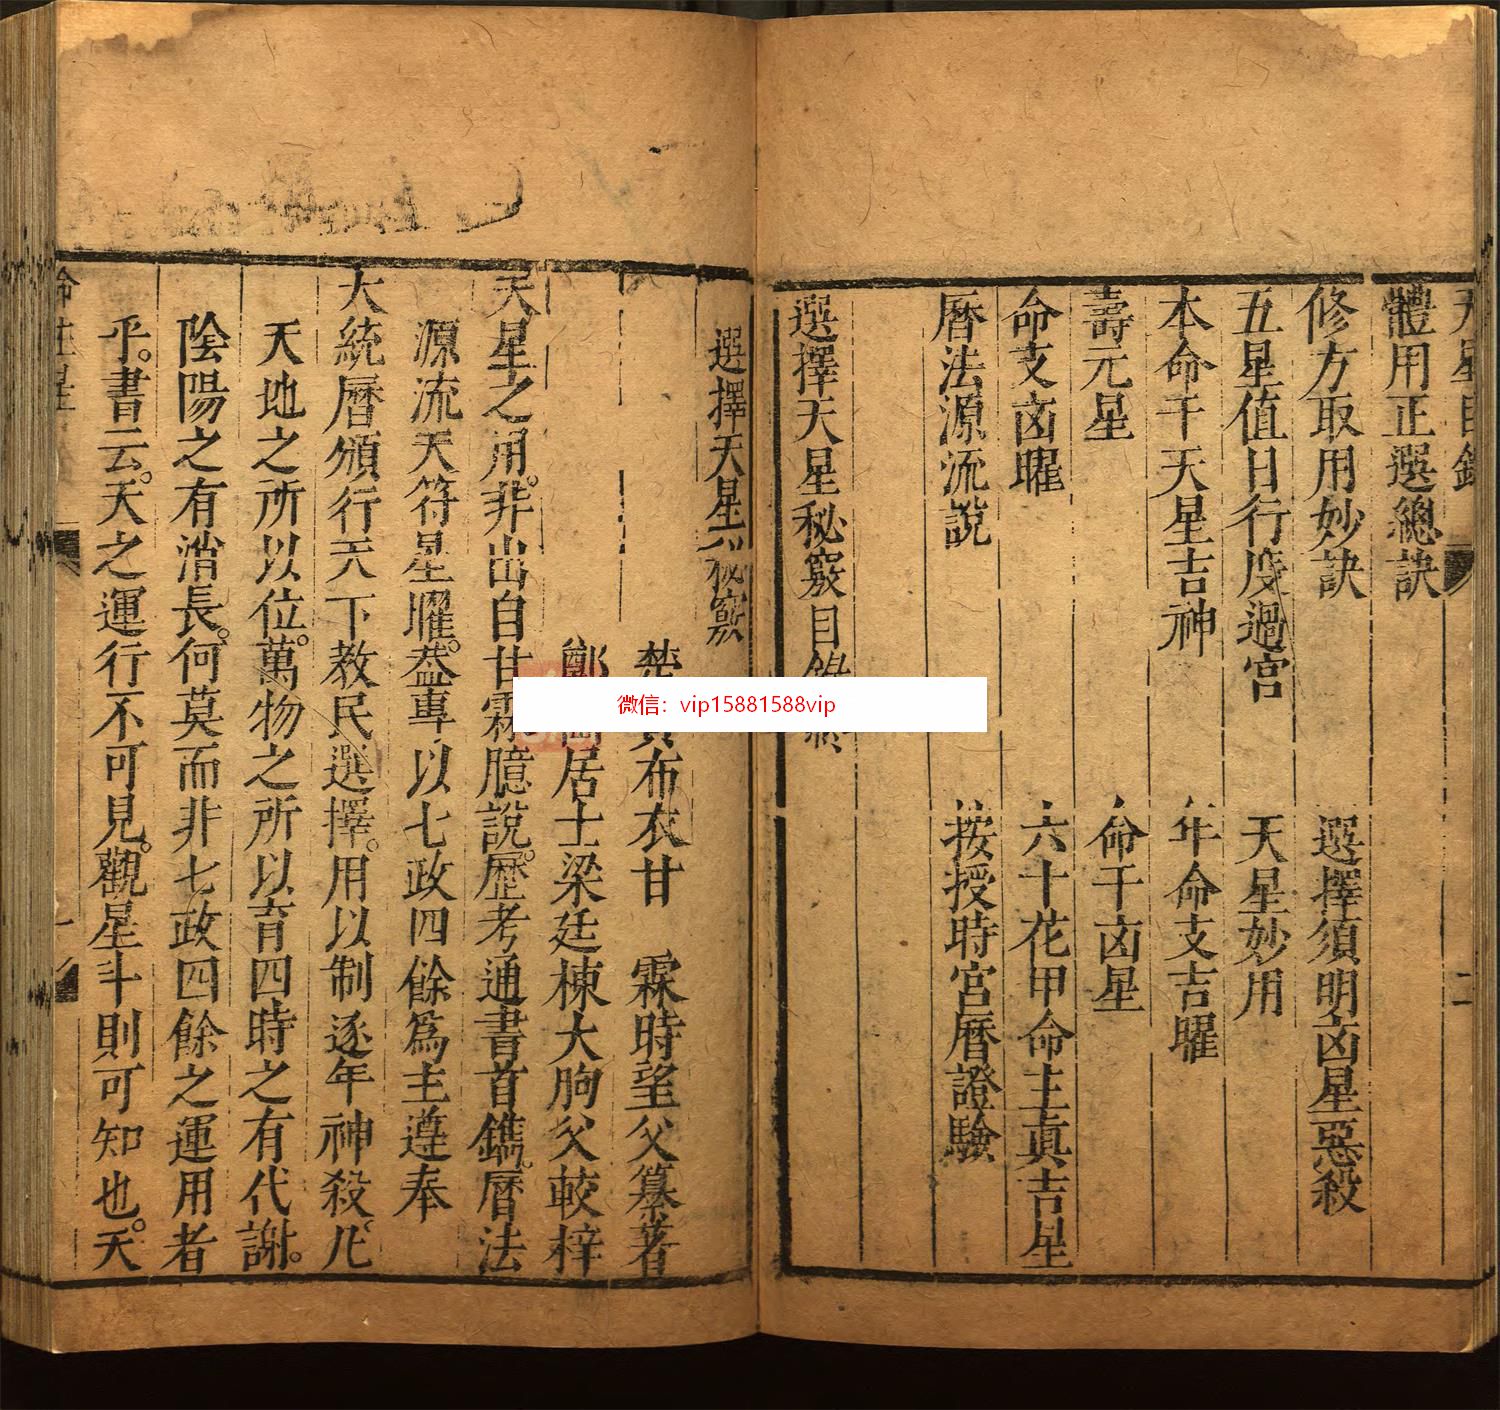 體用正選總訣
修方取用妙訣 選擇須明凶星惡殺
五星值日行度過宮 天星妙用
本命干天星吉神 年命支吉曜
壽元星 命干凶星
命支凶曜 六十花甲命主真吉星
曆法源流說 按授時宮曆證驗
選擇天星秘竅目錄
選擇天星秘竅
布衣甘 霖時望父纂著
居士梁廷棟大朐父較梓
天星之用。非出自甘霖臆說。歷考通書首鐫。曆法
源流天符星曜。葢專以七政四餘爲主遵奉
大統曆頒行天下教民選擇。用以制逐年神殺。凡
天地之所以位。萬物之所以育四時之有代謝。
陰陽之有消長。何莫而非七政四餘之運用者
乎。書云。天之運行不可見。觀星斗則可知也。天
微信：vip15881588vip